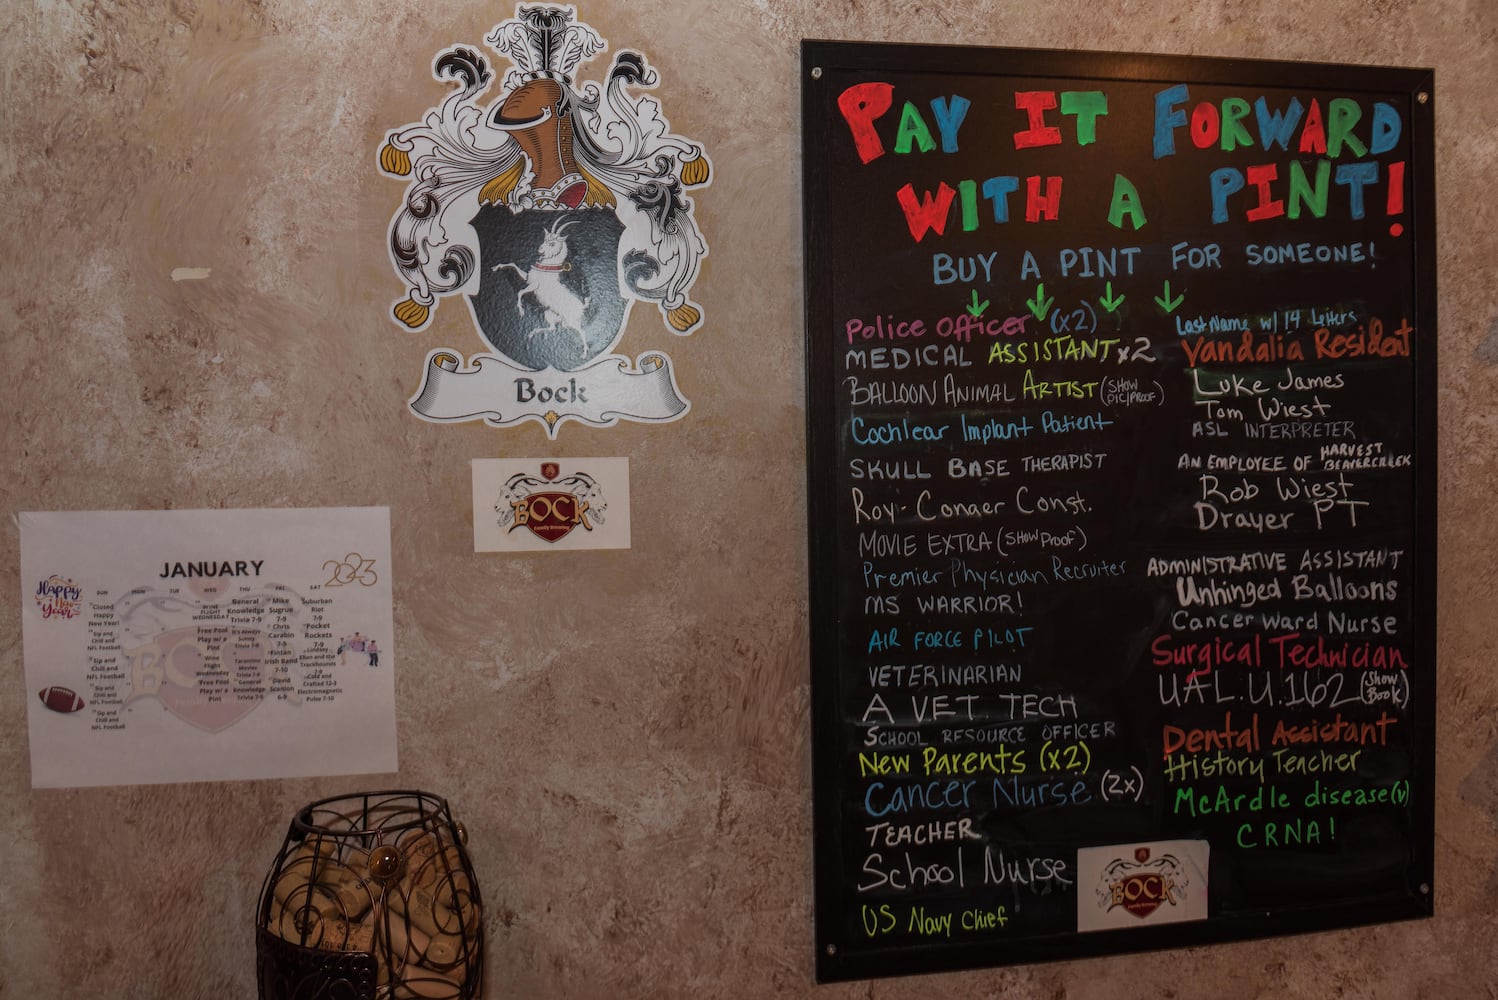 Bock
BOCK
Family Brewing
JANUARY
2023
Happy
New
Year!
SUN MON TUE WED THU FRI SAT
Closed
Happy
New Year!
WINE
FLIGHT
WEDNESDAY
General
Knowledge
Trivia 7-9
Mike
Sugrue
7-9
Suburban
Riot
7-9
Sip and
Chill and
NFL Football
Free Pool
Play w/ a
Pint
It's Always
Sunny
Trivia 7-9
Chris
Carabin
7-9
Pocket
Rockets
7-9
Sip and
Chill and
NFL Football
Wine
Flight
Wednesday
Tarantino
Movies
Trivia 7-9
Fintan
Irish Band
7-10
Lindsey
Ellen and the
Trackhounds
7-9
Sip and
Chill and
NFL Football
Free Pool
Play w/ a
Pint
General
Knowledge
Trivia 7-9
David
Scanlon
6-9
Cold and
Crafted 12-3
Electromagnetic
Pulse 7-10
Sip and
Chill and
NFL Football
BOCK
PAY IT FORWARD
WITH A PINT!
BUY A PINT FOR SOMEONE!
Police Officer (x2)
MEDICAL ASSISTANT x2
BALLOON ANIMAL ARTIST (SHOW PIC/PROOF)
Cochlear Implant Patient
SKULL BASE THERAPIST
Roy-Conger Const.
MOVIE EXTRA (SHOW Proof)
Premier Physician Recruiter
MS WARRIOR!
AIR FORCE PILOT
VETERINARIAN
A VET. TECH
SCHOOL RESOURCE OFFICER
New Parents (x2)
Cancer Nurse (2x)
TEACHER
School Nurse
US Navy Chief
Last Name w/ 14 Letters
Vandalia Resident
Luke James
Tom Wiest
ASL INTERPRETER
AN EMPLOYEE OF HARVEST BEAVERCREEK
Rob Wiest
Drayer PT
ADMINISTRATIVE ASSISTANT
Unhinged Balloons
Cancer Ward Nurse
Surgical Technician
UA L.U. 162 (Show Book)
Dental Assistant
History Teacher
McArdle disease (v)
CRNA!
BOCK
Family Brewing